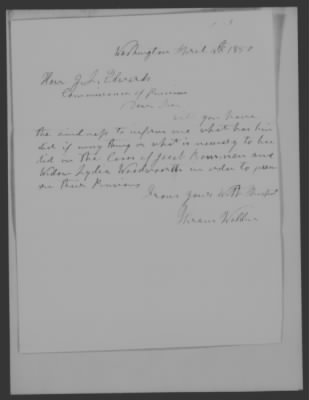 Washington April 4th 1850
Hon J. L. Edwards
Commissioner of Pensions
Dear Sir
Will you have
the kindness to inform me what has bin
did if any thing or what is necessary to bee
did in the Cases of Jacob and
Widow Lydia Woodworth in order to
their Pensions
yours With Respect
Hiram Walden